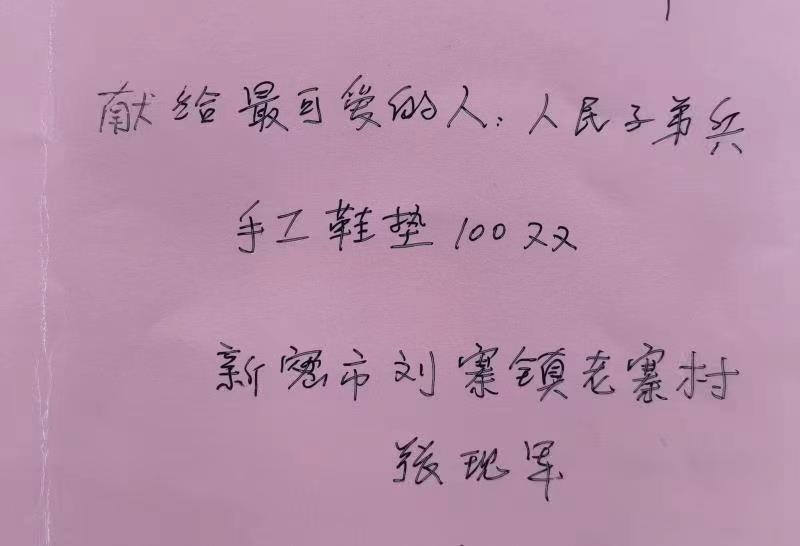 献给最可爱的人：人民子弟兵
手工鞋垫100双
新密市刘寨镇老寨村
张现军